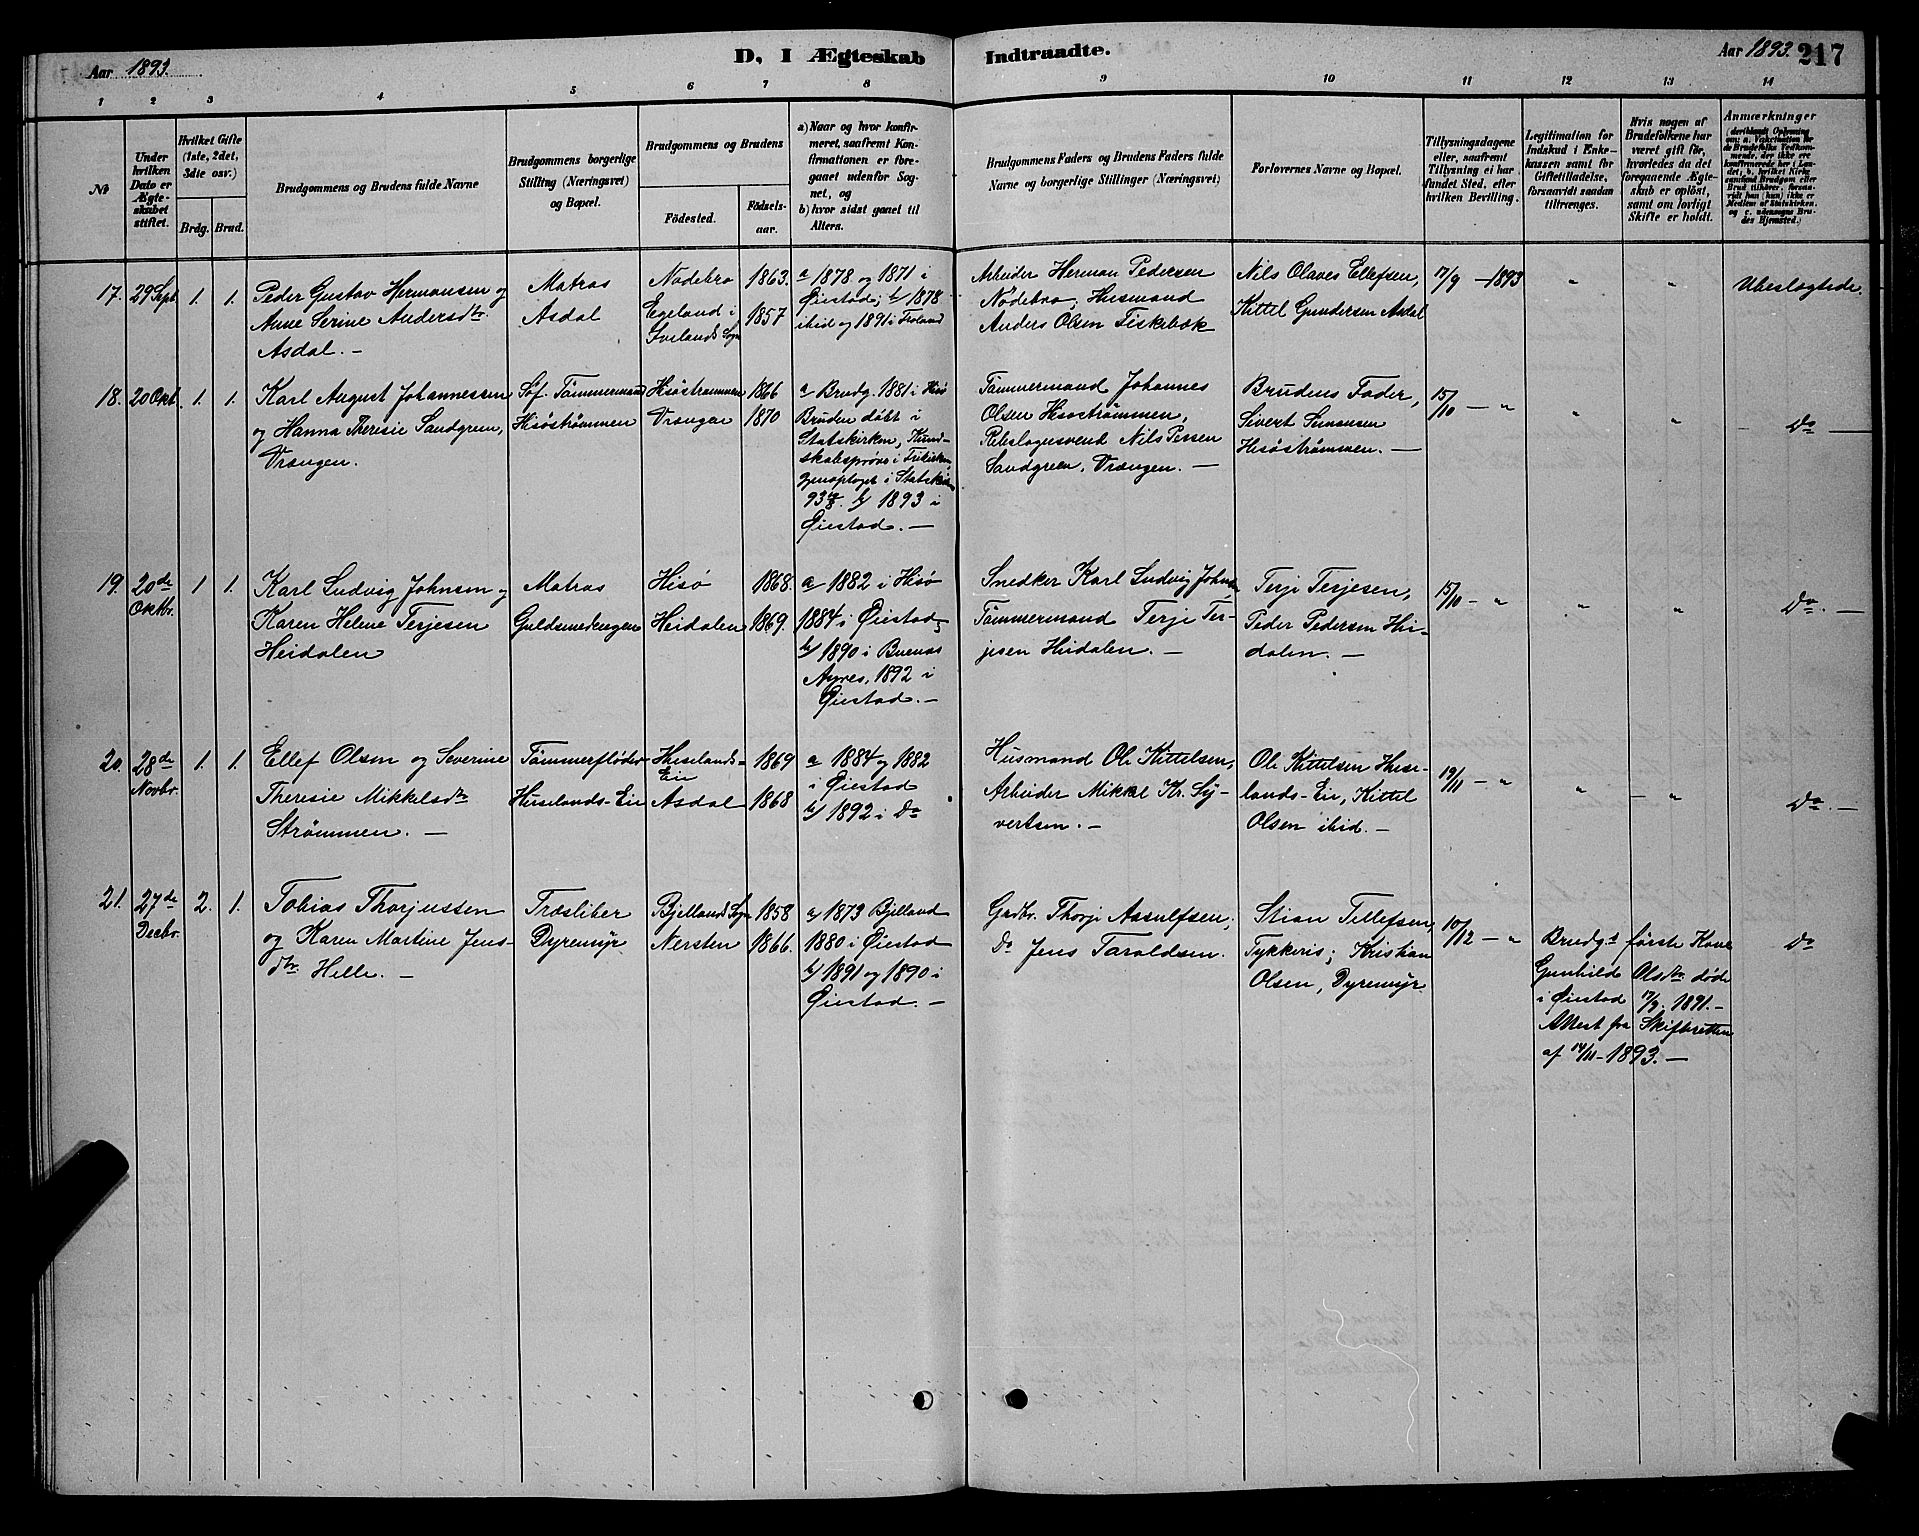 Aar 1893.
D, I Ægteskab Indtraadte.
Aar 1893. 217
1 2 3 4 5 6 7 8 9 10 11 12 13 14
No
Under hvilken Dato er Ægteskabet stiftet.
Hvilket Gifte (1ste, 2det, 3die osv.)
Brdg. Brud.
Brudgommens og Brudens fulde Navne
Brudgommens borgerlige Stilling (Næringsvei) og Bopæl.
Brudgommens og Brudens
Fødested.
Fødselsaar.
a) Naar og hvor konfirmeret, saafremt Konfirmationen er foregaaet udenfor Sognet, og
b) hvor sidst gaaet til Alters.
Brudgommens Faders og Brudens Faders fulde Navne og borgerlige Stillinger (Næringsvei)
Forlovernes Navne og Bopæl.
Tillysningsdagene eller, saafremt Tillysning ei har fundet Sted, efter hvilken Bevilling.
Legitimation for Indskud i Enkekassen samt for Giftetilladelse, forsaavidt saadan tiltrænges.
Hvis nogen af Brudefolkene har været gift før, hvorledes da det foregaaende Ægteskab er opløst, samt om lovligt Skifte er holdt.
Anmærkninger
17. 29 Sept. 1. 1.
Peder Gustav Hermansen og
Anne Serine Andersdtr.
Asdal. —
Matros
Asdal
Nødebro 1863.
Egeland i 1857
Ivelands Sogn
a 1878 og 1871 i
Øiestad; b/ 1878
ibid og 1891 i Froland
Arbeider Herman Pedersen
Nødebro, Husmand
Anders Olsen Fiskebæk
Nils Olaves Ellefsen,
Kittel Gundersen Asdal
17/9 — 1893
" "
Ubeslægtede.
18. 20 Okt. 1. 1.
Karl August Johannessen
og Hanna Theresie Sandgreen,
Vrængen.
Søf. Tömmermand
Hisöströmmen
Hisöströmmen 1866
Vrængen 1870
a Brudg. 1881 i Hisö
Bruden döbt i
Statskirken, Kund-
skabsprøve i Frikirken,
gjenoptaget i Statskirken
93. b/ 1893 i
Øiestad. —
Tömmermand Johannes
Olsen Hisöströmmen,
Rebslagersvend Nils Persen
Sandgreen, Vrængen. —
Brudens Fader,
Sivert Simonsen
Hisöströmmen. —
15/10 — "
" "
Do —
19. 20de Oktbr. 1 1.
Karl Ludvig Johnsen og
Karen Helene Terjesen
Heidalen
Matros
Guldsmedengen
Hisö 1868.
Heidalen 1869.
a 1882 i Hisö
1884 i Øiestad;
b/ 1890 i Buenos
Ayres, 1892 i
Øiestad. —
Snedker Karl Ludvig Johnsen,
Tömmermand Terje Ter-
jesen Heidalen. —
Terje Terjesen,
Peder Pedersen Hei-
dalen. —
15/10 — "
" "
Do. —
20. 28de Novbr. 1. 1.
Ellef Olsen og Severine
Theresie Mikkelsdtr
Strömmen. —
Tömmerfløder
Huselands-Eie
Huselands- 1869
Eie
Asdal 1868
a 1884 og 1882
i Øiestad
b/ 1892 i Do
Husmand Ole Kittelsen,
Arbeider Mikal Kr. Sy-
vertsen. —
Ole Kittelsen Huse-
lands-Eie, Kittel
Olsen ibid. —
19/11 — "
" — "
Do. —
21. 27de Decbr. 2. 1.
Tobias Thorjussen
og Karen Martine Jens-
dtr. Helle. —
Træsliber
Dyremyr
Bjellands Sogn 1858
Nersten 1866.
a/ 1873 Bjelland
1880 i Øiestad
b/ 1891 og 1890 i
Øiestad. —
Gdbr. Thorje Assulfsen,
Do Jens Taraldsen.
Stian Tellefsen,
Tykkeris; Kristian
Olsen, Dyremyr
10/12 — "
Brudgs første Kone
Gunhilde Olsdtr døde
i Øiestad 17/9 1891. —
Attest fra Skifteretten
af 14/11 - 1893. —
Do